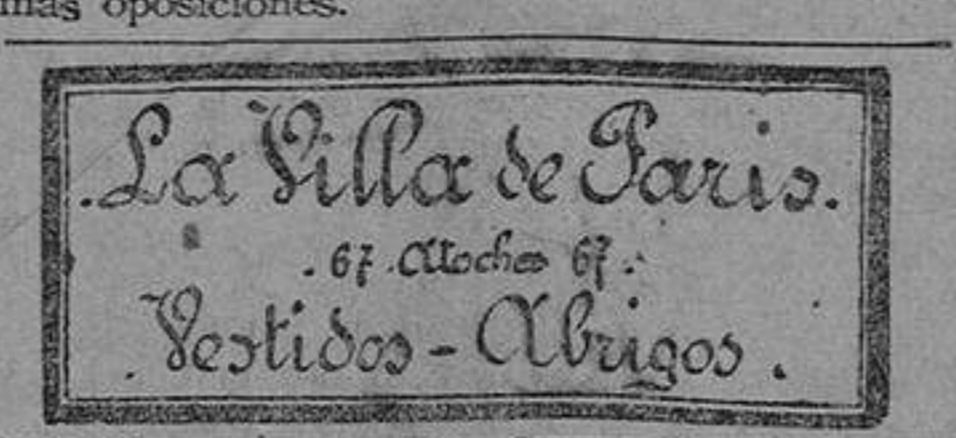 más oposiciones.
La Villa de Paris.
67. Atocha 67.
Vestidos - Abrigos.